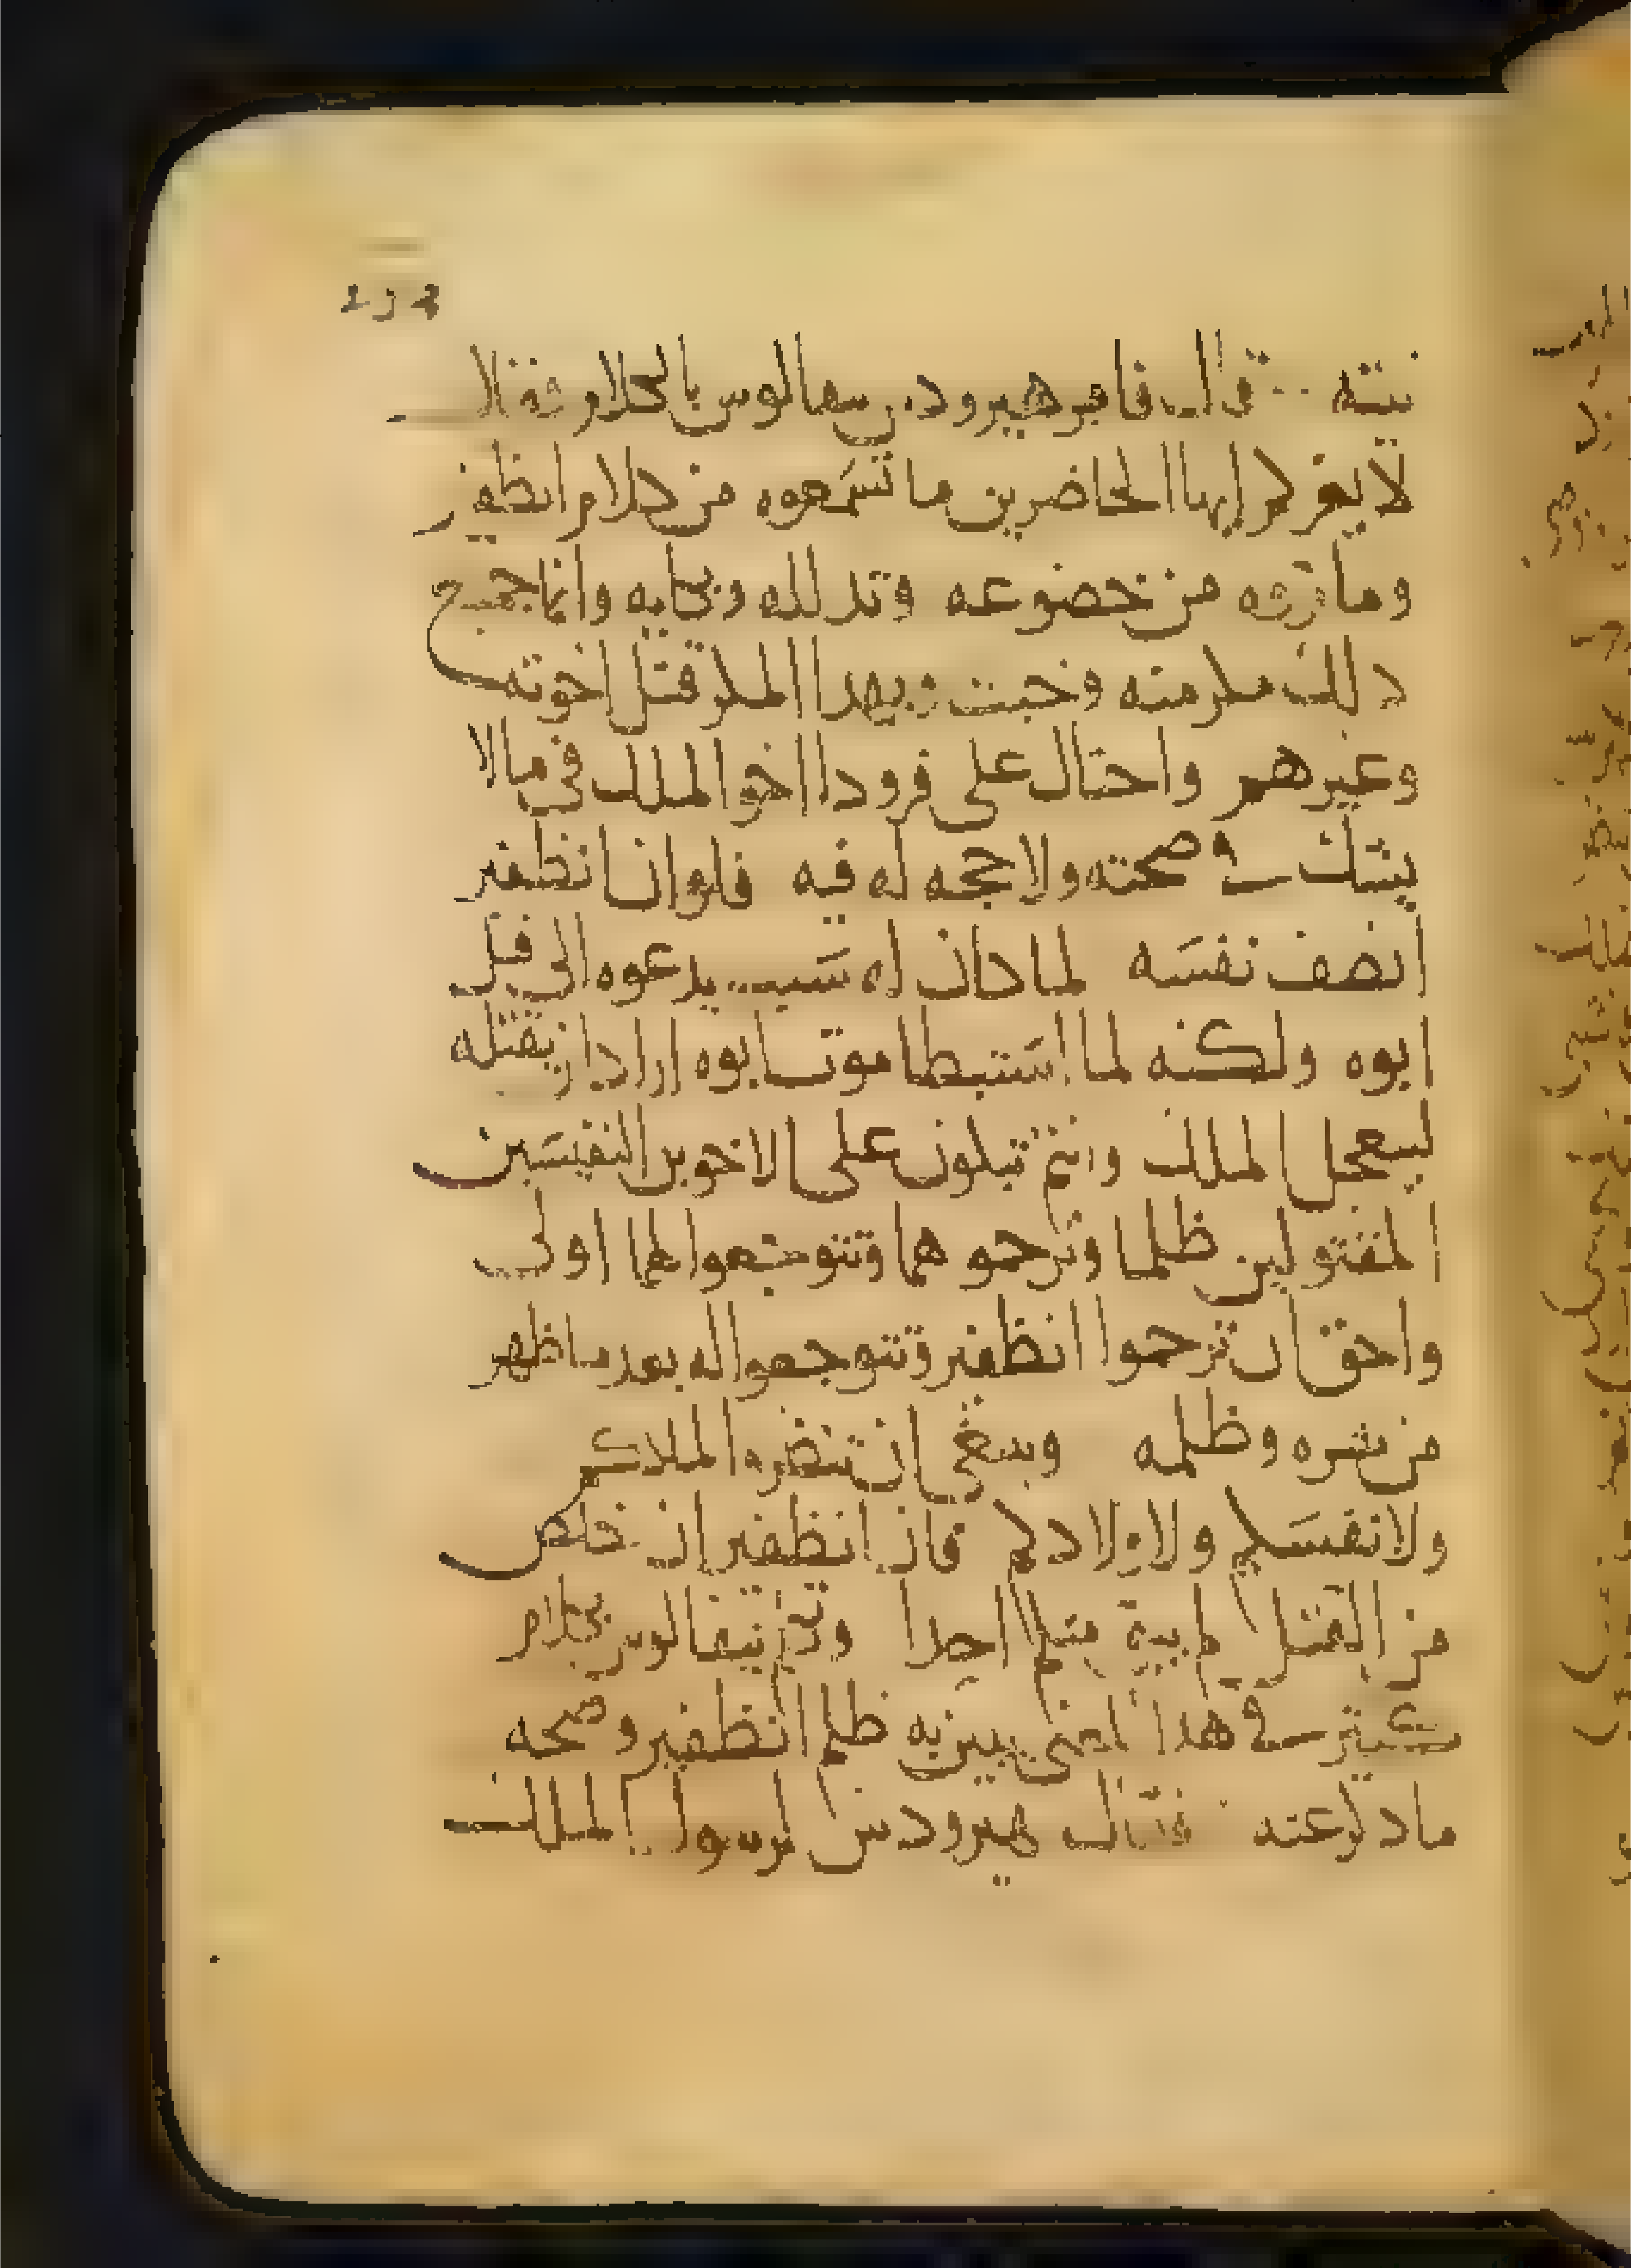 نيته قال فامر هيرودس نيقالوس بالكلام فقال
لا يغركم ايها الحاضرين ما تسمعوه من كلام انظفر
وما تروه من خضوعه وتدلله وبكايه وانما جميع
دلك مكر منه وخبث وبهدا المكر قتل اخوته
وغيرهم واحتال على فرودا اخو الملك في ما لا
يشك في صحته ولا حجه له فيه فلو ان انظفر
انصف نفسه لما كان له سبب يدعوه الى قتل
ابوه ولكنه لما استبطا موت ابوه اراد ان يقتله
ليتعجل الملك وانتم تبكون على الاخوين النفيسين
المقتولين ظلما وترحموهما وتتوجعوا لهما اولى
واحق ان ترحموا انظفر وتتوجعوا له بعد ما ظهر
من شره وظلمه وينبغي ان تنظروا لملككم
ولانفسكم ولاولادكم فان انظفر ان خلص
من القتل لم يبق منكم احدا وتكلم نيقالوس بكلام
كثير في هدا المعنى يبين به ظلم انظفر وصحه
ما دكر عنه فقال هيرودس لرسول الملك